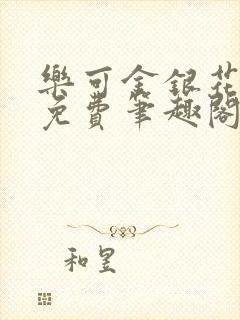 樂可金銀花
免費筆趣閣
和昱